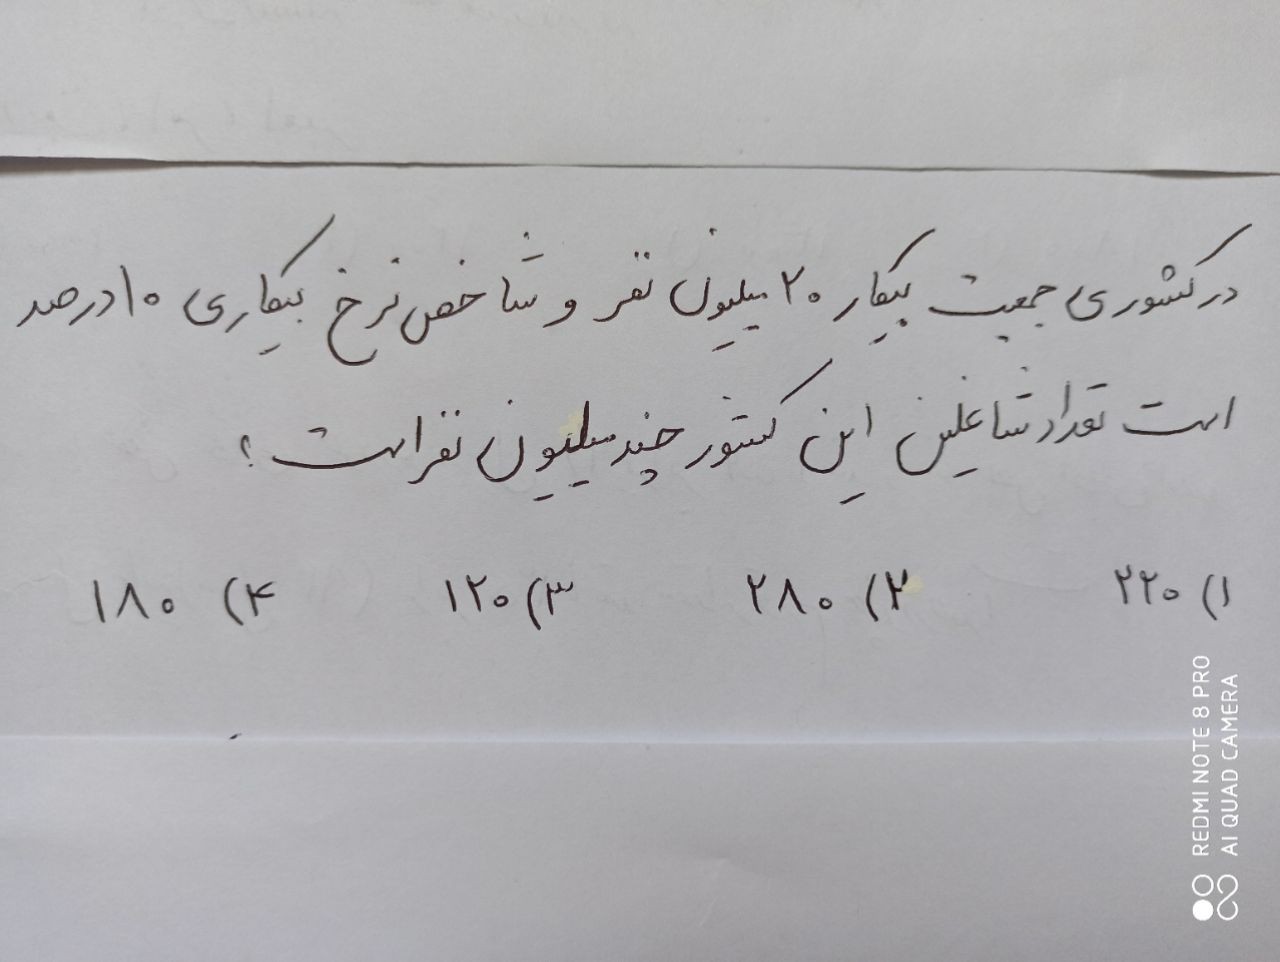 در کشوری جمعیت بیکار ۲۰ میلیون نفر و شاخص نرخ بیکاری ۱۰ درصد
است تعداد شاغلین این کشور چند میلیون نفر است ؟
۱) ۲۲۰ ۲) ۲۸۰ ۳) ۱۲۰ ۴) ۱۸۰
REDMI NOTE 8 PRO
AI QUAD CAMERA